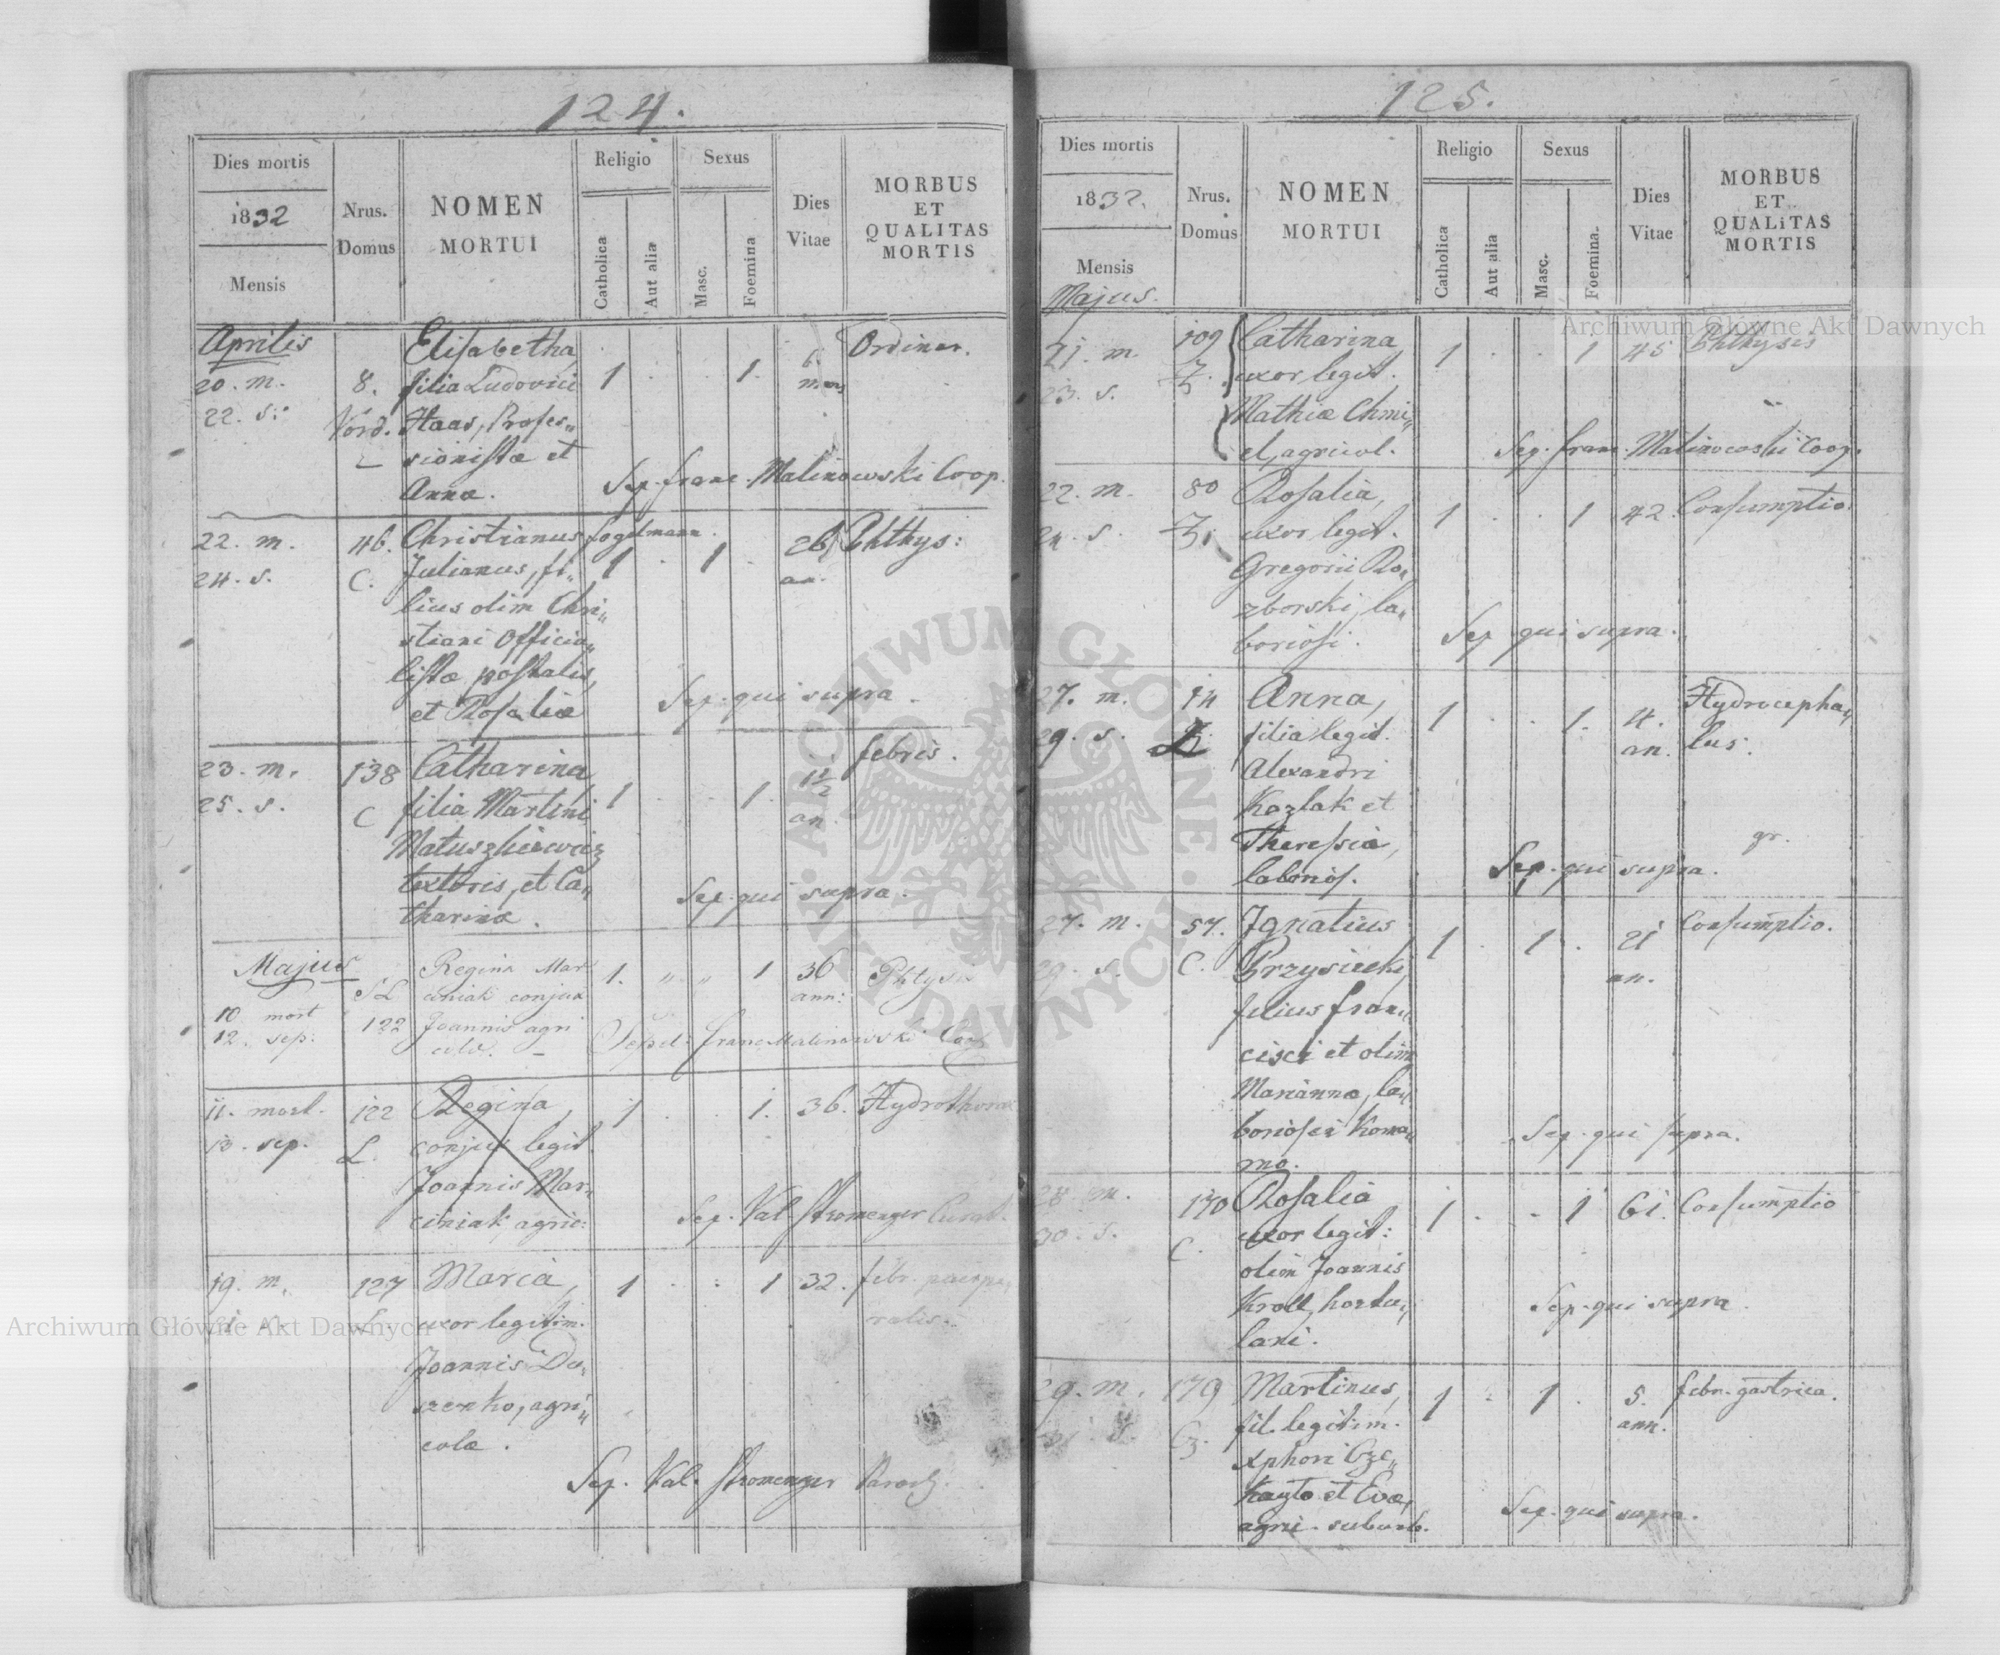 124.
Dies mortis
1832
Mensis
Nrus.
Domus
NOMEN
MORTUI
Religio
Catholica
Aut alia
Sexus
Masc.
Foemina
Dies
Vitae
MORBUS
ET
QUALITAS
MORTIS
Aprilis
20. m.
22. s.
8.
Elisabetha,
filia Ludovici
Haas, Profes„
sionistæ et
Annæ.
1 . . 1.
6.
Ordinar.
Sep. franc. Malinowski Coop.
22. m.
24. s.
46.
C.
Christianus fogelmann.
Julianus, fi„
lius olim Chri„
stiani Officia„
listæ postalis,
et Rosaliæ
1 . 1 .
26
an.
Phthys:
Sep. qui supra.
23. m.
25. s.
138
C
Catharina,
filia Martini
Matuszkiewicz
textoris, et Ca„
tharinæ.
1 . . 1.
1½
an.
febris.
Sep. qui supra.
Majus
10 mort
12. sep:
SL
122
Regina Mar
ciniak conjux
Joannis agri
colæ. –
1. „ „ 1
36
ann:
Phtysis
Sepel: franc Malinowski Coop
11. mort.
13. sep.
122
L.
Regina,
conjux legit.
Joannis Mar„
ciniak, agric:
1 . . 1.
36.
Hydrothorax
Sep. Val. Stromenger Curat.
19. m.
127
L
Maria,
uxor legitim.
Joannis Du„
szenko, agri„
colæ.
1 . . 1
32.
febr. puerpe„
ralis.
Sep. Val. Stromenger Paroch.
125.
Dies mortis
1832.
Mensis
Majus.
Nrus.
Domus
NOMEN
MORTUI
Religio
Catholica
Aut alia
Sexus
Masc.
Foemina.
Dies
Vitae
MORBUS
ET
QUALITAS
MORTIS
21. m.
23. s.
109
Catharina
uxor legit.
Mathiæ Chmi„
el, agricol.
1 . . 1
45
Phthysis
Sep. franc. Malinowski Coop.
22. m.
24. s.
80
Rosalia,
uxor legit.
Gregorii Ro„
zborski, la„
boriosi.
1 . . 1
42.
Consumptio.
Sep qui supra.
27. m.
29. s.
14
Anna,
filia legit.
Alexandri
Kozlak et
Theresiæ,
laborios.
1 . . 1.
4.
an.
Hydrocepha„
lus.
gr.
Sep. qui supra.
27. m.
29. s.
57.
C.
Ignatius
Przysiecki,
filius fran„
cisci et olim
Mariannæ, la„
boriosi Koma„
rno.
1 . 1 .
21
an.
Consumptio.
Sep. qui supra.
28. m.
30. s.
170
C.
Rosalia
uxor legit:
olim Joannis
Kroll, hortu„
lani.
1 . . 1
61.
Consumptio
Sep. qui supra.
29. m.
31. s.
179
Martinus,
fil. legitim.
Xphori Cze„
kayto et Evæ,
agri. suburb.
1 . 1 .
5.
ann.
febr. gastrica.
Sep. qui supra.
Archiwum Główne Akt Dawnych
Archiwum Główne Akt Dawnych
ARCHIWUM GŁÓWNE AKT DAWNYCH